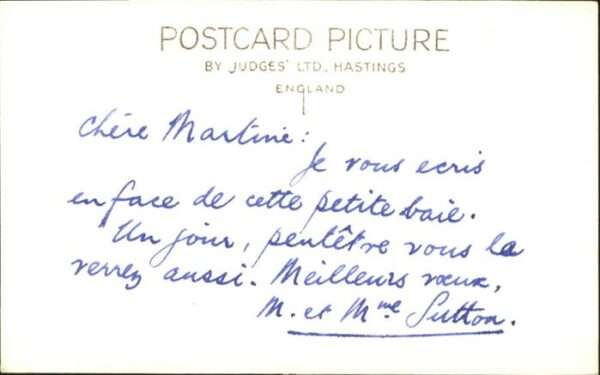 POSTCARD PICTURE
BY JUDGES' LTD., HASTINGS
ENGLAND
Chère Martine:
Je vous ecris
en face de cette petite baie.
Un jour, peutêtre vous la
verrez aussi. Meilleurs vœux,
M. et Mme Sutton.